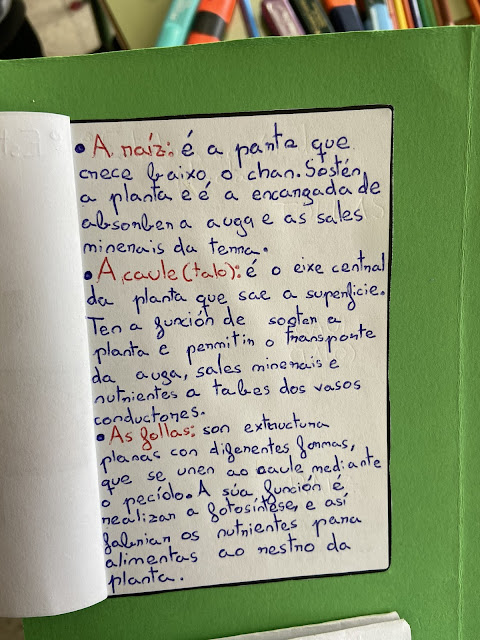 • A raíz: é a parte que
crece baixo o chan. Sostén
a planta e é a encargada de
absorber a auga e as sales
minerais da terra.
• A caule (talo): é o eixe central
da planta que sae a superficie.
Ten a función de soster a
planta e permitir o transporte
da auga, sales minerais e
nutrientes a tabes dos vasos
conductores.
• As follas: son extructura
planas con diferentes formas,
que se unen ao caule mediante
o pecíolo. A súa función é
realizar a fotosíntese, e así
fabrican os nutrientes para
alimentas ao restro da
planta.